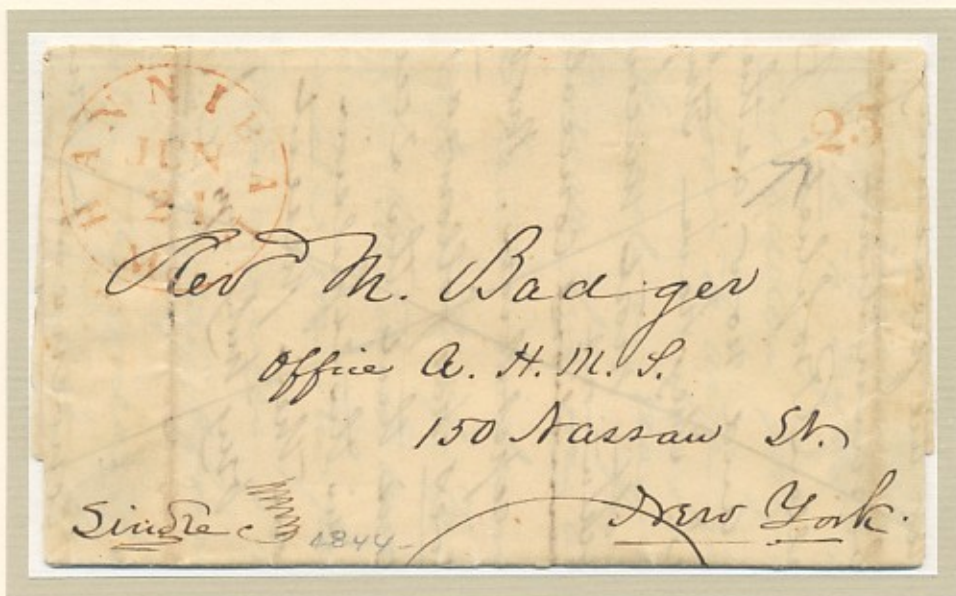 JUN
25
Rev M. Badger
Office A. H. M. S.
150 Nassau St.
New York.
Single
1844